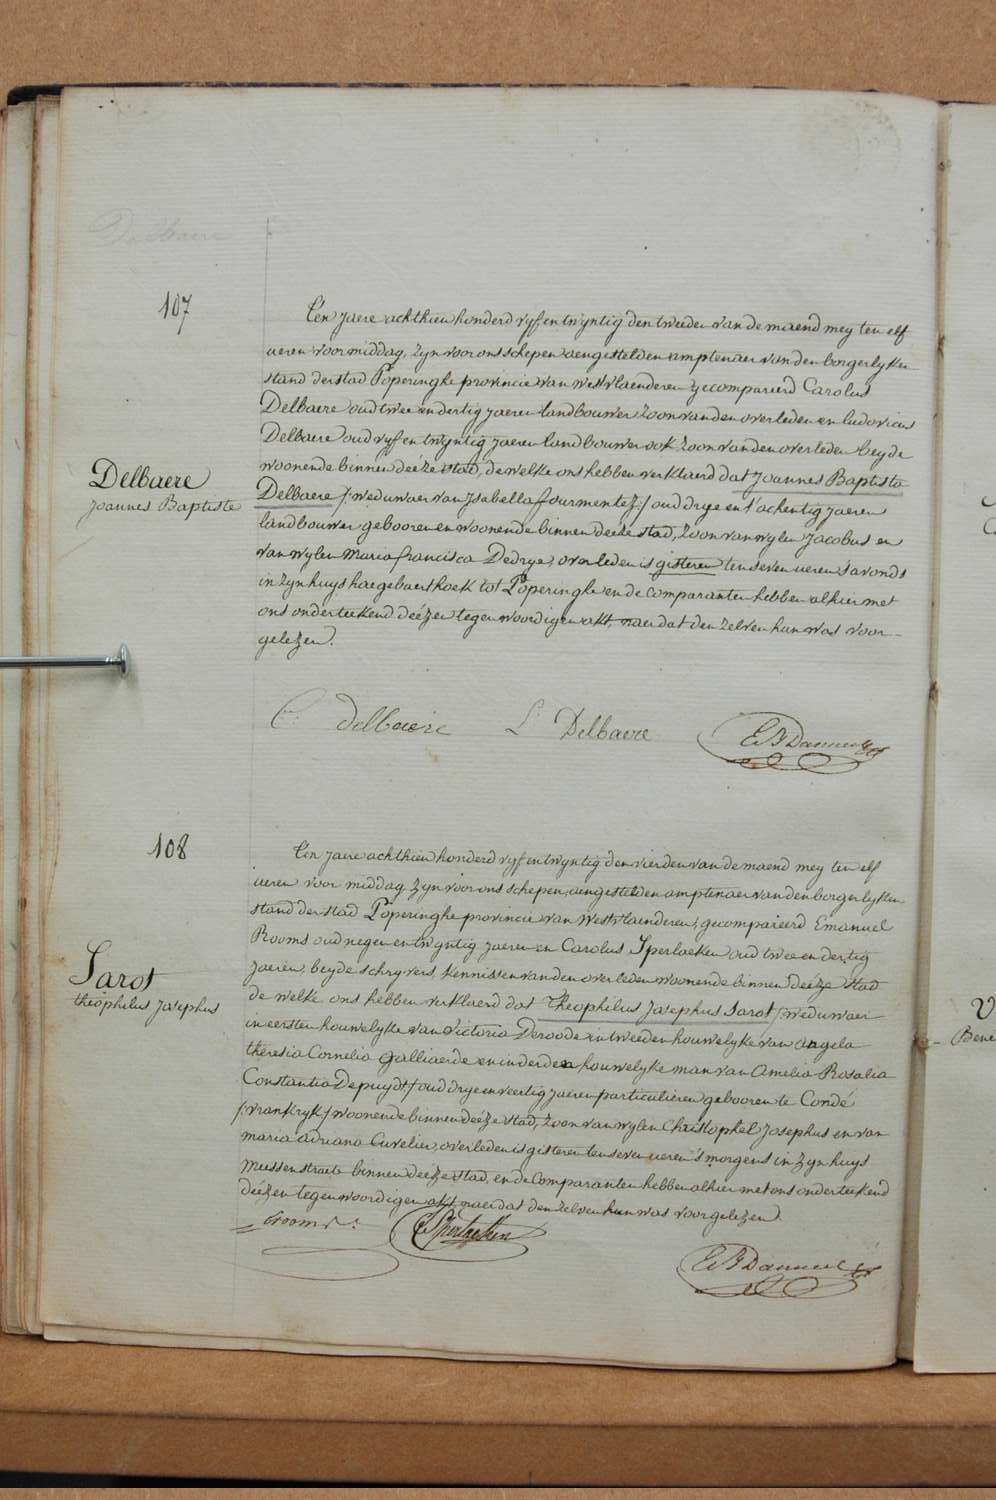 107
Een jaere achthien honderd vyf en twyntig den tweeden van de maend mey ten elf
ueren voor middag, zyn voor ons schepen aengestelden amptenaer van den borgerlyken
stand der stad Poperinghe provincie van westvlaenderen gecompareerd Carolus
Delbaere oud twee en dertig jaeren landbouwer zoon van den overleden en ludovicus
Delbaere oud vyf en twyntig jaeren landbouwer ook zoon van den overleden beyde
woonende binnen deéze stad, de welke ons hebben verklaerd dat Joannes Baptiste
Delbaere /: weduwaer van Isabella fourmentez :/ oud drye en t'achentig jaeren
landbouwer gebooren en woonende binnen deéze stad, zoon van wylen Jacobus en
van wylen maria francisca Dedrye, overleden is gisteren ten seven ueren s'avonds
in zyn huys haegebaerthoek tot Poperinghe en de comparanten hebben alhier met
ons onderteekend deézen tegenwoordigen akt, naer dat den zelven hun was voor-
gelezen.
Delbaere
Joannes Baptiste
C: delbaere L: Delbaere
108
Een jaere achthien honderd vyf en twyntig den vierden van de maend mey ten elf
ueren voor middag zyn voor ons schepen, aengestelden amptenaer van den borgerlyken
stand der stad Poperinghe provincie van westvlaenderen, gecompareerd Emanuel
Rooms oud negen en twyntig jaeren en Carolus Sperlaeken oud twee en dertig
jaeren, beyde schryvers, kennissen van den overleden woonende binnen deéze stad
de welke ons hebben verklaerd dat Theophilus Josephus Sarot /: weduwaer
in eersten houwelyke van Victoria Deroode in tweeden houwelyke van Angela
theresia Cornelia Galliaerde en in derden houwelyke man van Amelia Rosalia
Constantia Depuydt :/ oud drye en veertig jaeren particulieren gebooren te Condé
/: vrankryk :/ woonende binnen deéze stad, zoon van wylen Christophel Josephus en van
maria adriana Cuvelier, overleden is gisteren ten seven ueren 's morgens in zyn huys
meessenstraete binnen deéze stad, en de comparanten hebben alhier met ons onderteekend
deézen tegenwoordigen akt naer dat den zelven hun was voorgelezen.
Sarot
theophilus Josephus
Erooms. CSperlaeken